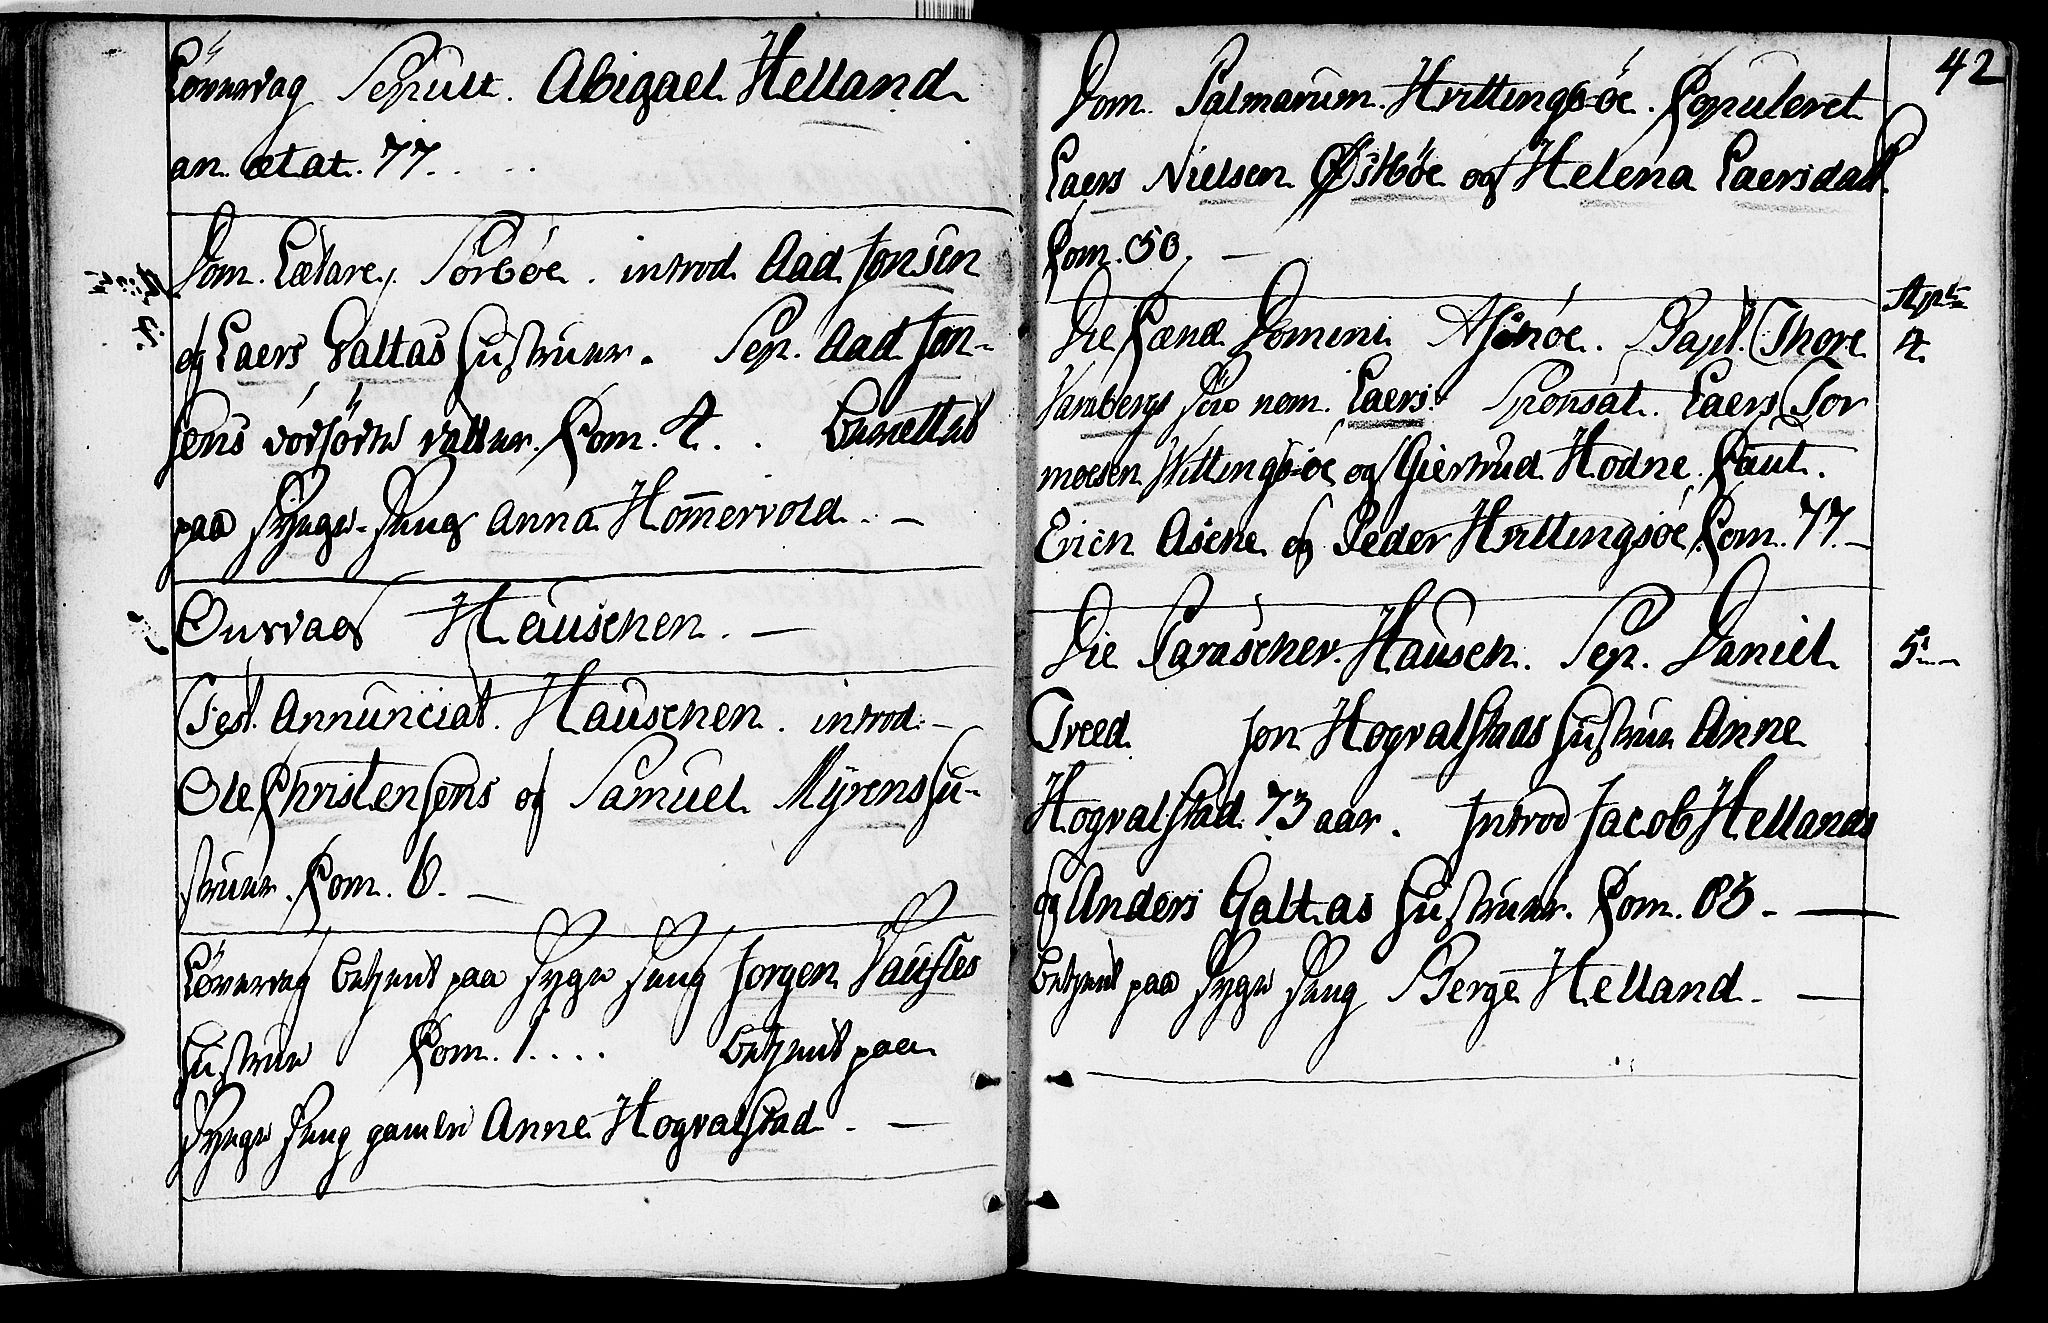 Løverdag Sepult. Abigael Helland
an. ætat. 77.
Dom. Lætare. Sörböe. introd. Aad Jonsen
og Laers Galtas Hustruer. Sep. Aad Jon-
sens dödfödte datter. Com. 4. . Berettet
paa Syge-Seng Anna Hom̄ervold. –
Onsdag Hauschen. –
Fest. Annunciat. Hauschen. introd. –
Ole Christensens og Samuel Myrens Hu-
struer. Com. 6. –
Løverdag betient paa Syge Seng Jorgen
Hustrue Com. 1. . . . betient paa
Syge Seng gamle Anne Hogvalstad. –
42
Dom. Palmarum. Hvittingsöe. Copuleret
Laers Nielsen Östböe og Helena Laersdatt.
Com. 50. –
Die Cænæ Domini Aschöe. Bapt. Thore
Apr:
4.
nom. Laers. Sponsat. Laers Tor
moesen Hvittingsöe og Giertrud Hodne. Caut.
Erich Asche og Peder Hvittingsöe. Com. 77. –
Die Paraschev. Hausch. Sep. Daniel
5. –
Treed. Jon Hogvalstads Hustrue Anne
Hogvalstad. 73 aar. Introd Jacob Hellands
og Anders Galtas Hustruer. Com. 85. –
betient paa Syge Seng Berge Helland. –